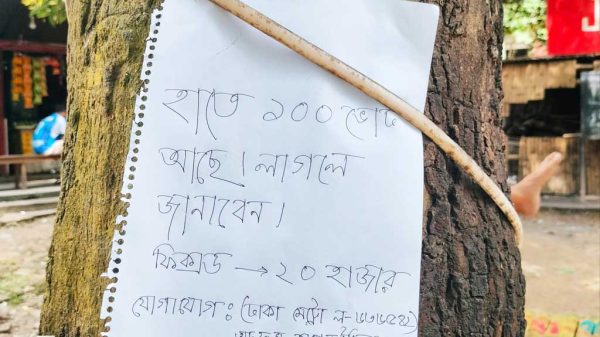 হাতে ১০০ ভোট
আছে। লাগলে
জানাবেন।
ফিক্সড → ২০ হাজার
যোগাযোগ: (ঢাকা মেট্রো ল-